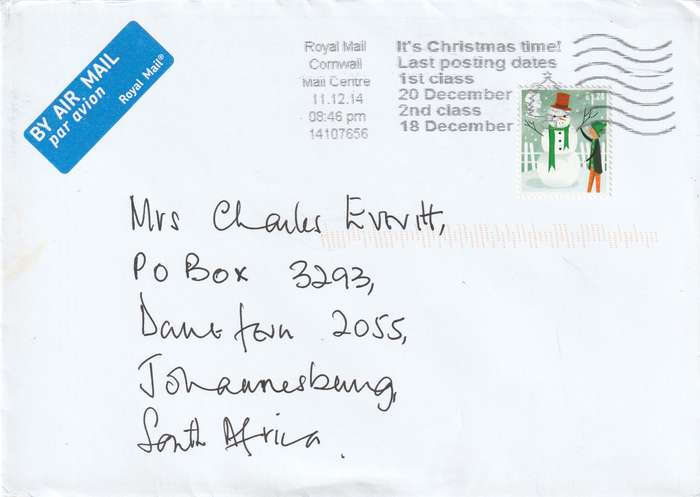 BY AIR MAIL
par avion
Royal Mail®
Royal Mail
Cornwall
Mail Centre
11.12.14
08:46 pm
14107656
It's Christmas time!
Last posting dates
1st class
20 December
2nd class
18 December
£1.28
Mrs Charles Everitt,
PO Box 3293,
Dainfern 2055,
Johannesburg,
South Africa.